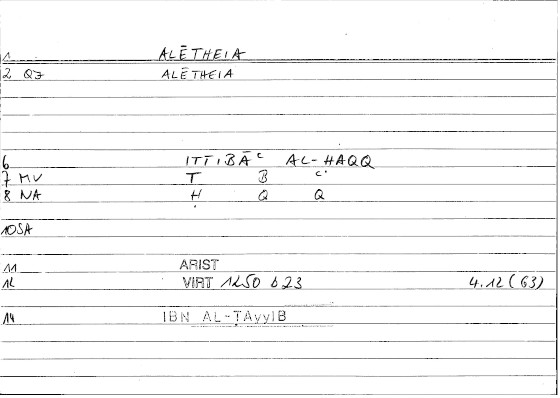 1 ALĒTHEIA
2 QJ ALĒTHEIA
6 ITTIBĀʿ AL-HAQQ
7 MV T B ʿ
8 NA Ḥ Q Q
10SA
11 ARIST
12 VIRT 1250 b23 4.12 (63)
14 IBN AL-ṬAyyIB